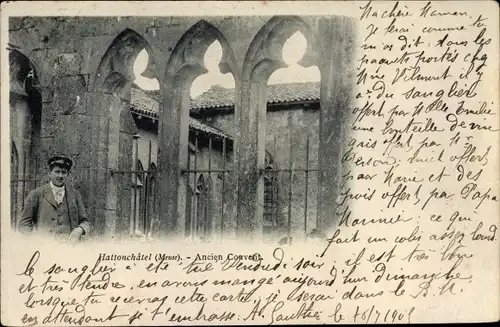 Hattonchâtel (Meuse). - Ancien Couvent.
Ma chère Maman,
Je t'ai comme tu
m'as dit tous les
paquets portés en
que Vilmont il y
a du sanglier
offert par Melle Emilie
une bouteille de vin
gris offert par Mr
offert
par Marie et des
pois offert par Papa
Mariné : ce qui
fait un colis assez lourd.
Le sanglier a été tué Vendredi soir, il est très beau
et très tendre, en avons mangé aujourd'hui dimanche
lorsque tu recevras cette carte, je serai dans le
en attendant je t'embrasse. A. Gauthier le 16/7 1905